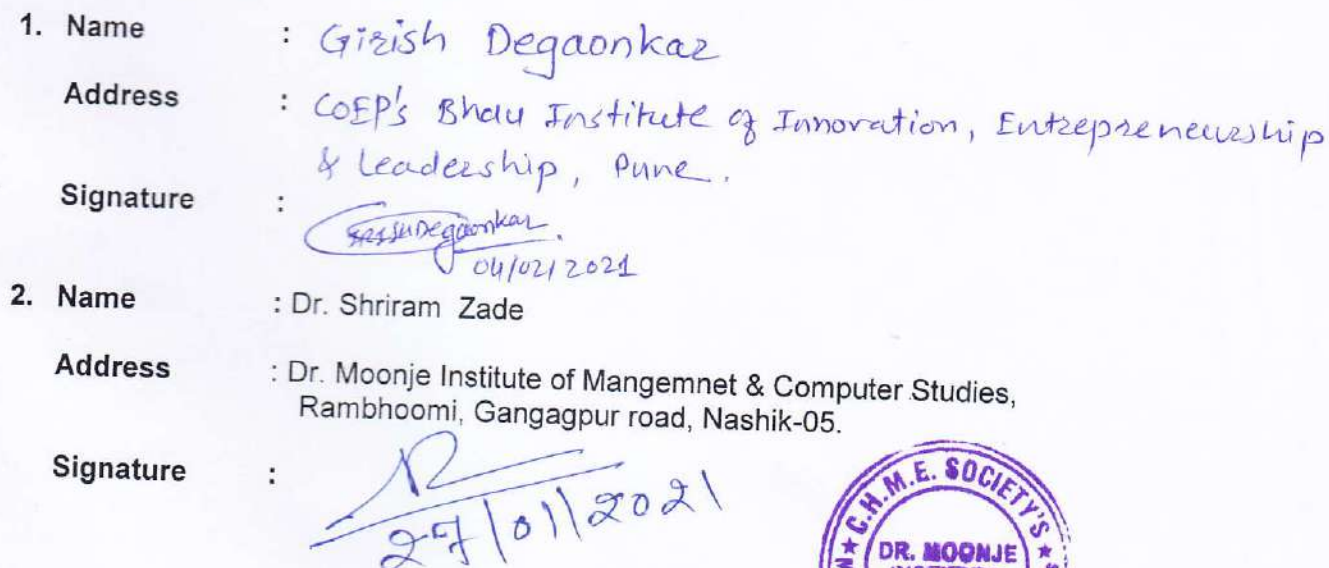 1. Name : Girish Degaonkar
Address : COEP's Bhau Institute of Innovation, Entrepreneurship
& Leadership, Pune.
Signature :
Degaonkar.
04/02/2021
2. Name : Dr. Shriram Zade
Address : Dr. Moonje Institute of Mangemnet & Computer Studies,
Rambhoomi, Gangagpur road, Nashik-05.
Signature :
27/01/2021
C.H.M.E. SOCIETY'S
DR. MOONJE